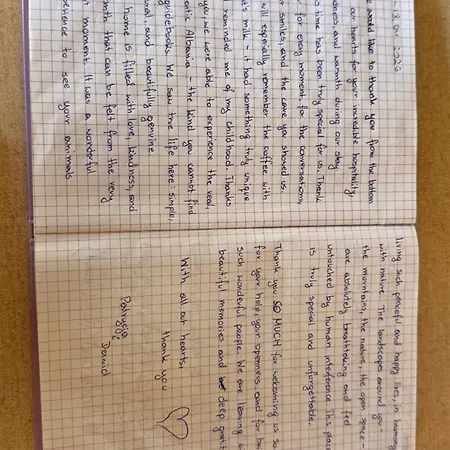 18.04.2026
We would like to thank you from the bottom
our hearts for your incredible hospitality,
kindness, and warmth during our stay
time has been truly special for us. Thank
for every moment, for the conversations,
smiles, and the care you showed us.
will especially remember the coffee with
milk - it had something truly unique
reminded me of my childhood. Thanks
you, we were able to experience the real,
authentic Albania - the kind you cannot find
guidebooks. We saw true life here: simple,
and beautifully genuine.
home is filled with love, kindness, and
warmth that can be felt from the very
moment. It was a wonderful
experience to see your animals
living such peaceful and happy lives, in harmony
with nature. The landscapes around you -
the mountains, the nature, the open space -
are absolutely breathtaking and feel
untouched by human interference. This place
is truly special and unforgettable.
Thank you SO MUCH for welcoming us so
for your help, your openness, and for
such wonderful people. We are leaving
beautiful memories and deep
With all our hearts,
thank you
Patrycja
Dawid